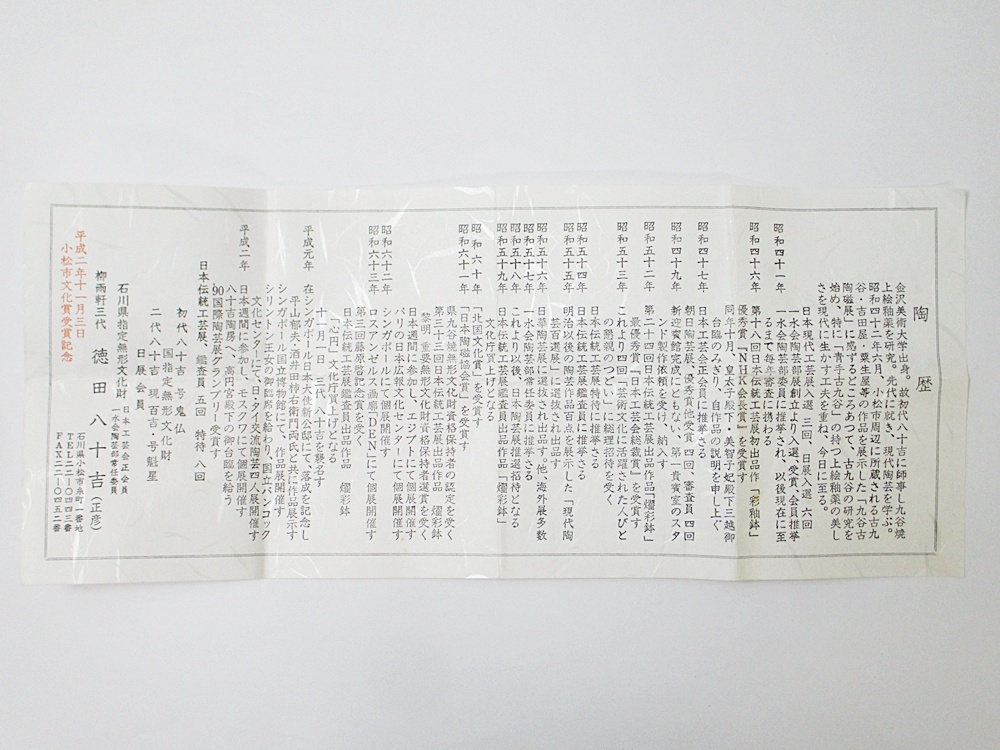 陶歴
金沢美術大学出身。故初代八十吉に師事し九谷焼
上絵釉薬を研究。先代に就き、現代陶芸を学ぶ。
昭和四十二年六月、小松市周辺に所蔵される古九
谷・吉田屋・粟生屋等の作品を展示した「九谷古
陶磁展」に感ずるところあつて、古九谷の研究を
始め、特に「青手古九谷」の持つ上絵釉薬の美し
さを現代に生かす工夫を重ね、今日に至る。
日本現代工芸展入選 三回、日展入選 六回
昭和四十一年 一水会陶芸部展創立より入選、受賞、会員推挙
一水会陶芸部委員に推挙され、以後現在に至
るまで毎年審査に携わる
昭和四十六年 第十八回日本伝統工芸展初出品作「彩釉鉢」
優秀賞「NHK会長賞」を受賞す
同年十月、皇太子殿下、美智子妃殿下三越御
台臨のみぎり、自作品の説明を申し上ぐ
昭和四十七年 日本工芸会正会員に推挙さる
朝日陶芸展、優秀賞他受賞 四回、審査員 四回
昭和四十九年 新迎賓館完成にともない、第一貴賓室のスタ
ンド製作依頼を受け、納入す
昭和五十二年 第二十四回日本伝統工芸展出品作品「燿彩鉢」
最優秀賞「日本工芸会総裁賞」を受賞す
昭和五十三年 これより四回「芸術文化に活躍された人びと
の懇親のつどい」に総理招待を受く
日本伝統工芸展特待に推挙さる
昭和五十四年 日本伝統工芸展鑑査員に推挙さる
昭和五十五年 明治以後の陶芸作品百点を展示した「現代陶
芸百選展」に選抜され出品す
昭和五十六年 日華陶芸展に選抜され出品す。他、海外展多数
昭和五十七年 一水会陶芸部常任委員に推挙さる
昭和五十八年 これより以後、日本陶芸展推選招待となる
昭和五十九年 日本伝統工芸展鑑査員出品作品「燿彩鉢」
文化庁買上げとなる
昭和六十年 「北国文化賞」を受賞す
昭和六十一年 「日本陶磁協会賞」を受賞す
県九谷焼無形文化財資格保持者の認定を受く
第三十三回日本伝統工芸展出品作品 燿彩鉢
黎明 重要無形文化財資格保持者選賞を受く
昭和六十二年 日本週間に参加し、エジプトにて個展開催す
パリの日本広報文化センターにて個展開催す
昭和六十三年 シンガポールにて個展開催す
ロスアンゼルス画廊「DEN」にて個展開催す
第三回藤原啓記念賞を受く
日本伝統工芸展鑑査員出品作品 燿彩鉢
「心円」文化庁買上げとなる
十一月一日 三代八十吉を襲名す
平成元年 在シンガポール日本大使新公邸にて、落成を記念し
平山郁夫・酒井田柿右衛門両氏と共に作品展示す
シンガポール国立博物館にて、作品展開催す
シリントン王女の御臨席を給わり、国立バンコック
文化センターにて、日・タイ交流陶芸四人展開催す
平成二年 日本週間に参加し、モスクワにて個展開催す
八十吉陶房へ、高円宮殿下の御台臨を給う
90国際陶芸展グランプリー受賞す
日本伝統工芸展、鑑査員 五回 特待 八回
初代八十吉 号鬼仏
国指定無形文化財
二代八十吉 現百吉・号魁星
日展会員
石川県指定無形文化財
日本工芸会正会員
一水会陶芸部常任委員
柳雨軒三代 徳田八十吉（正彦）
石川県小松市糸町一番地
TEL二二-〇四四三番
FAX二二-〇四五二番
平成二年十一月三日
小松市文化賞受賞記念